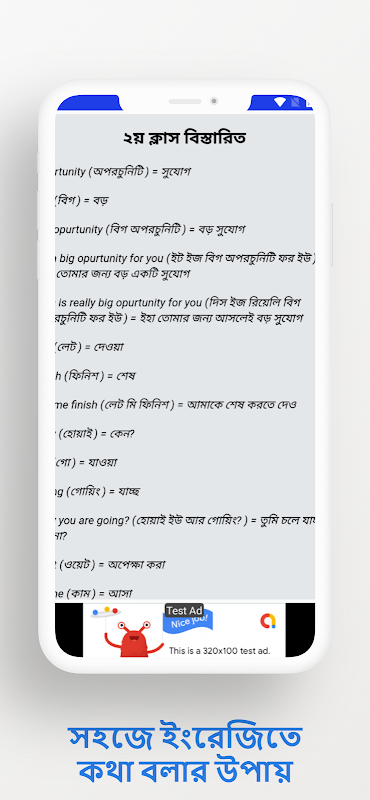 ২য় ক্লাস বিস্তারিত
rtunity (অপরচুনিটি) = সুযোগ
(বিগ) = বড়
opurtunity (বিগ অপরচুনিটি) = বড় সুযোগ
big opurtunity for you (ইট ইজ বিগ অপরচুনিটি ফর ইউ)
তোমার জন্য বড় একটি সুযোগ
is really big opurtunity for you (দিস ইজ রিয়েলি বিগ
রচুনিটি ফর ইউ) = ইহা তোমার জন্য আসলেই বড় সুযোগ
(লেট) = দেওয়া
h (ফিনিশ) = শেষ
me finish (লেট মি ফিনিশ) = আমাকে শেষ করতে দেও
(হোয়াই) = কেন?
গো) = যাওয়া
ng (গোয়িং) = যাচ্ছ
you are going? (হোয়াই ইউ আর গোয়িং?) = তুমি চলে যাচ্ছ
না?
(ওয়েট) = অপেক্ষা করা
ne (কাম) = আসা
Test Ad
Nice job!
This is a 320x100 test ad.
সহজে ইংরেজিতে
কথা বলার উপায়